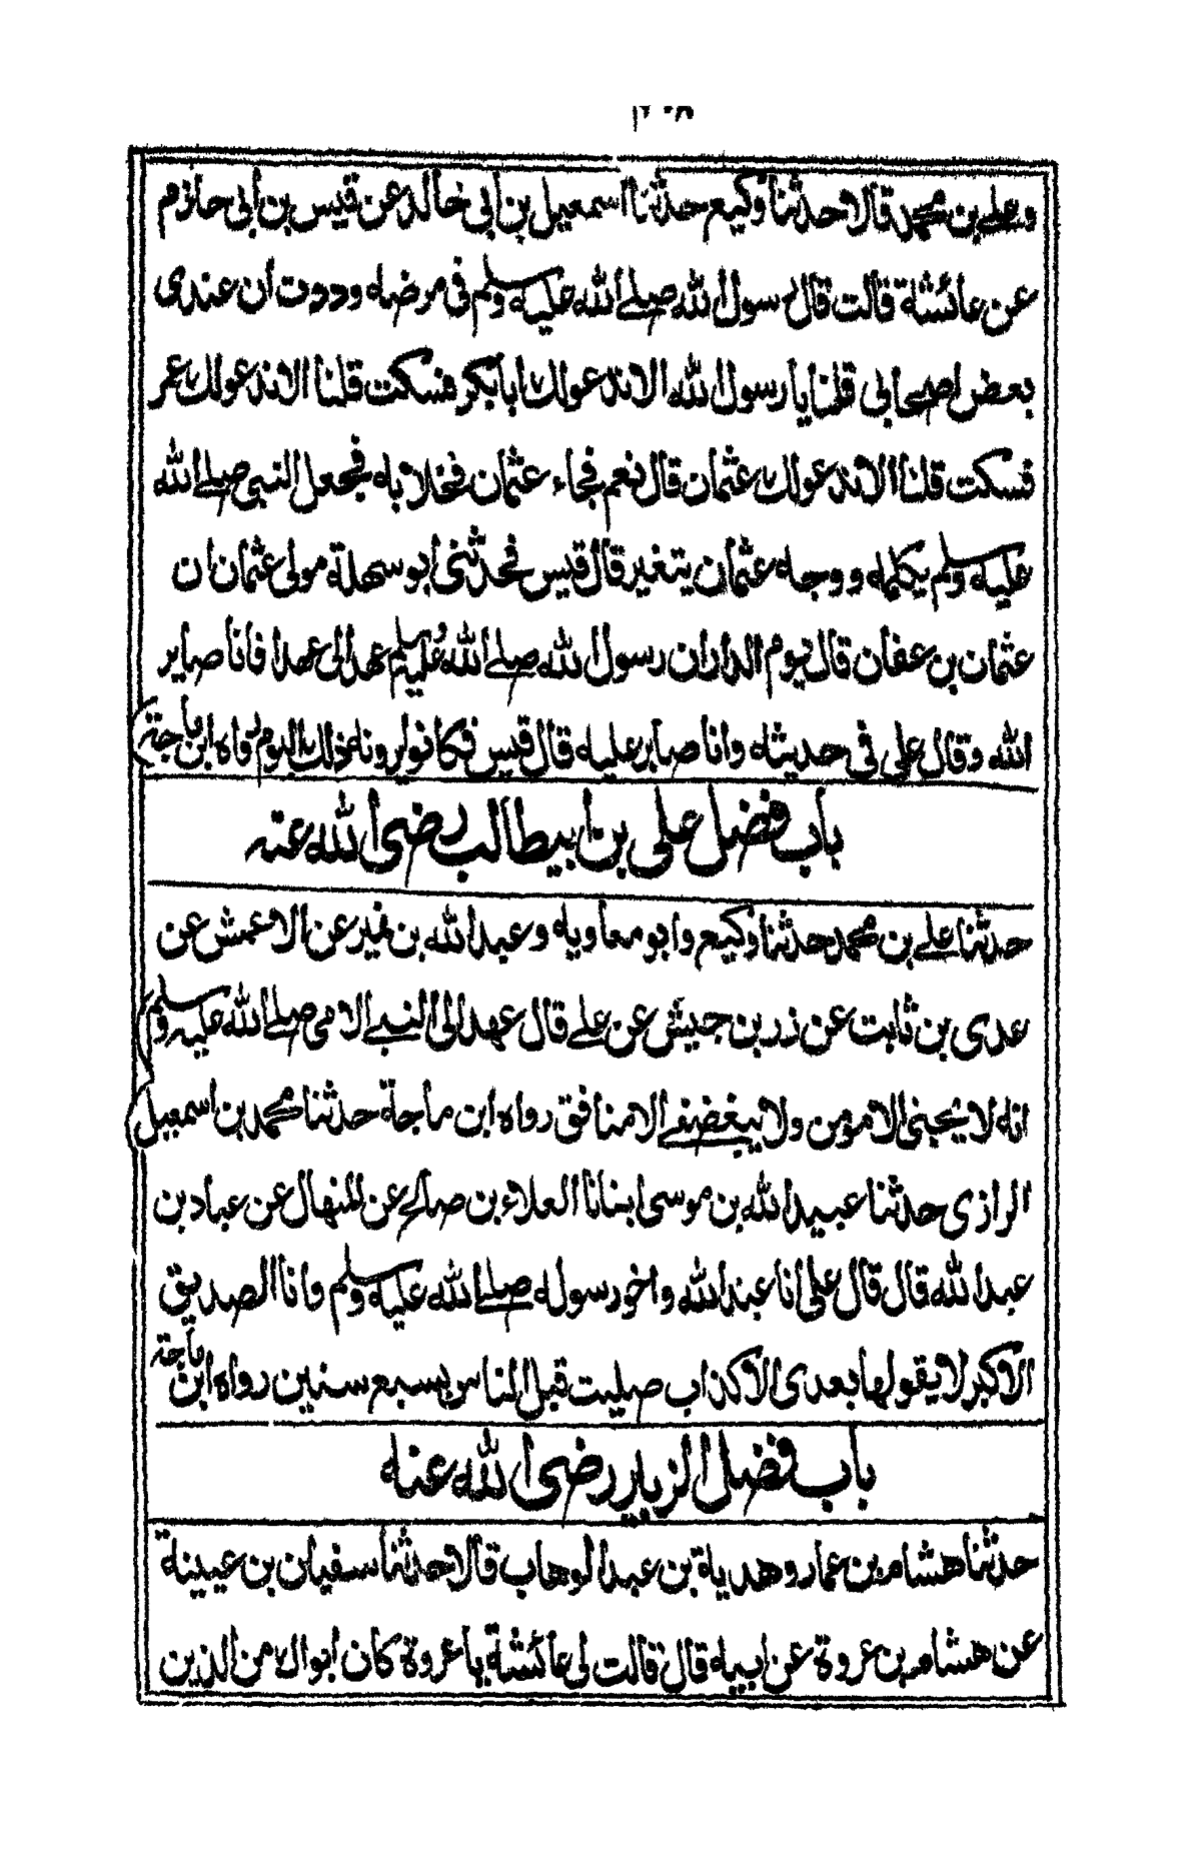 وعلي بن محمد قالا حدثنا وكيع حدثنا اسمعيل بن ابي خالد عن قيس بن ابي حازم
عن عائشة قالت قال رسول الله صلى الله عليه وسلم في مرضه وددت ان عندي
بعض اصحابي قلنا يا رسول الله الا ندعو لك ابا بكر فسكت قلنا الا ندعو لك عمر
فسكت قلنا الا ندعو لك عثمان قال نعم فجاء عثمان فخلا به فجعل النبي صلى الله
عليه وسلم يكلمه ووجه عثمان يتغير قال قيس فحدثني ابو سهلة مولى عثمان ان
عثمان بن عفان قال يوم الدار ان رسول الله صلى الله عليه وسلم عهد الي عهدا فانا صابر
الله وقال علي في حديثه وانا صابر عليه قال قيس فكانوا يرونه ذلك اليوم رواه ابن ماجة
باب فضل علي بن ابيطالب رضي الله عنه
حدثنا علي بن محمد حدثنا وكيع وابو معاوية وعبد الله بن نمير عن الاعمش عن
عدي بن ثابت عن زر بن حبيش عن علي قال عهد الي النبي الامي صلى الله عليه وسلم
انه لا يحبني الا مؤمن ولا يبغضني الا منافق رواه ابن ماجة حدثنا محمد بن اسمعيل
الرازي حدثنا عبيد الله بن موسى انبانا العلاء بن صالح عن المنهال عن عباد بن
عبد الله قال قال علي انا عبد الله واخو رسوله صلى الله عليه وسلم وانا الصديق
الاكبر لا يقولها بعدي الا كذاب صليت قبل الناس بسبع سنين رواه ابن ماجة
باب فضل الزبير رضي الله عنه
حدثنا هشام بن عمار وهدية بن عبد الوهاب قالا حدثنا سفيان بن عيينة
عن هشام بن عروة عن ابيه قال قالت لي عائشة يا عروة كان ابواك من الذين